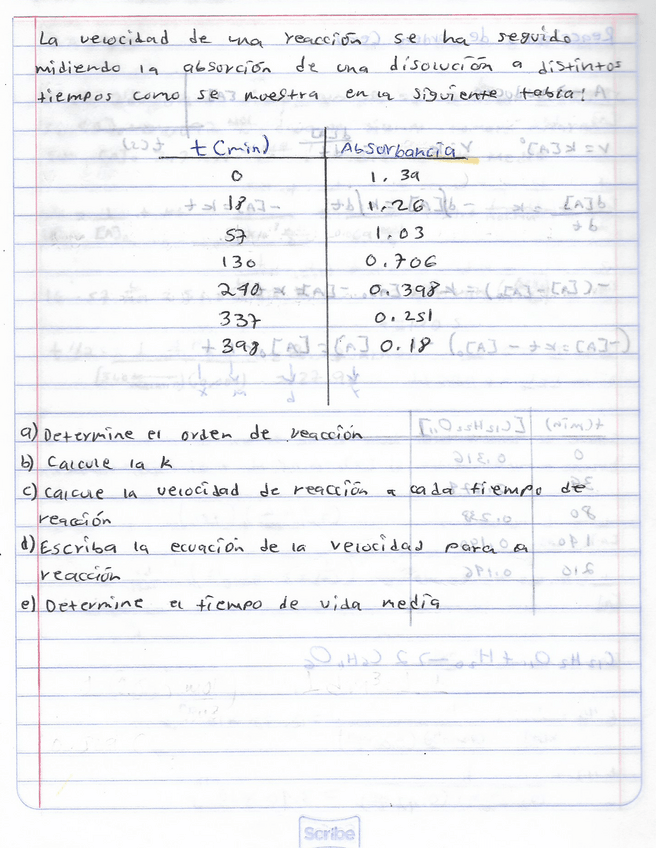 La velocidad de una reacción se ha seguido
midiendo la absorción de una disolución a distintos
tiempos como se muestra en la siguiente tabla:
t (min) Absorbancia
0 1.39
18 1.26
57 1.03
130 0.706
240 0.398
337 0.251
398 0.18
a) Determine el orden de reacción
b) Calcule la k
c) Calcule la velocidad de reacción a cada tiempo de
reacción
d) Escriba la ecuación de la velocidad para a
reacción
e) Determine el tiempo de vida media
Scribe